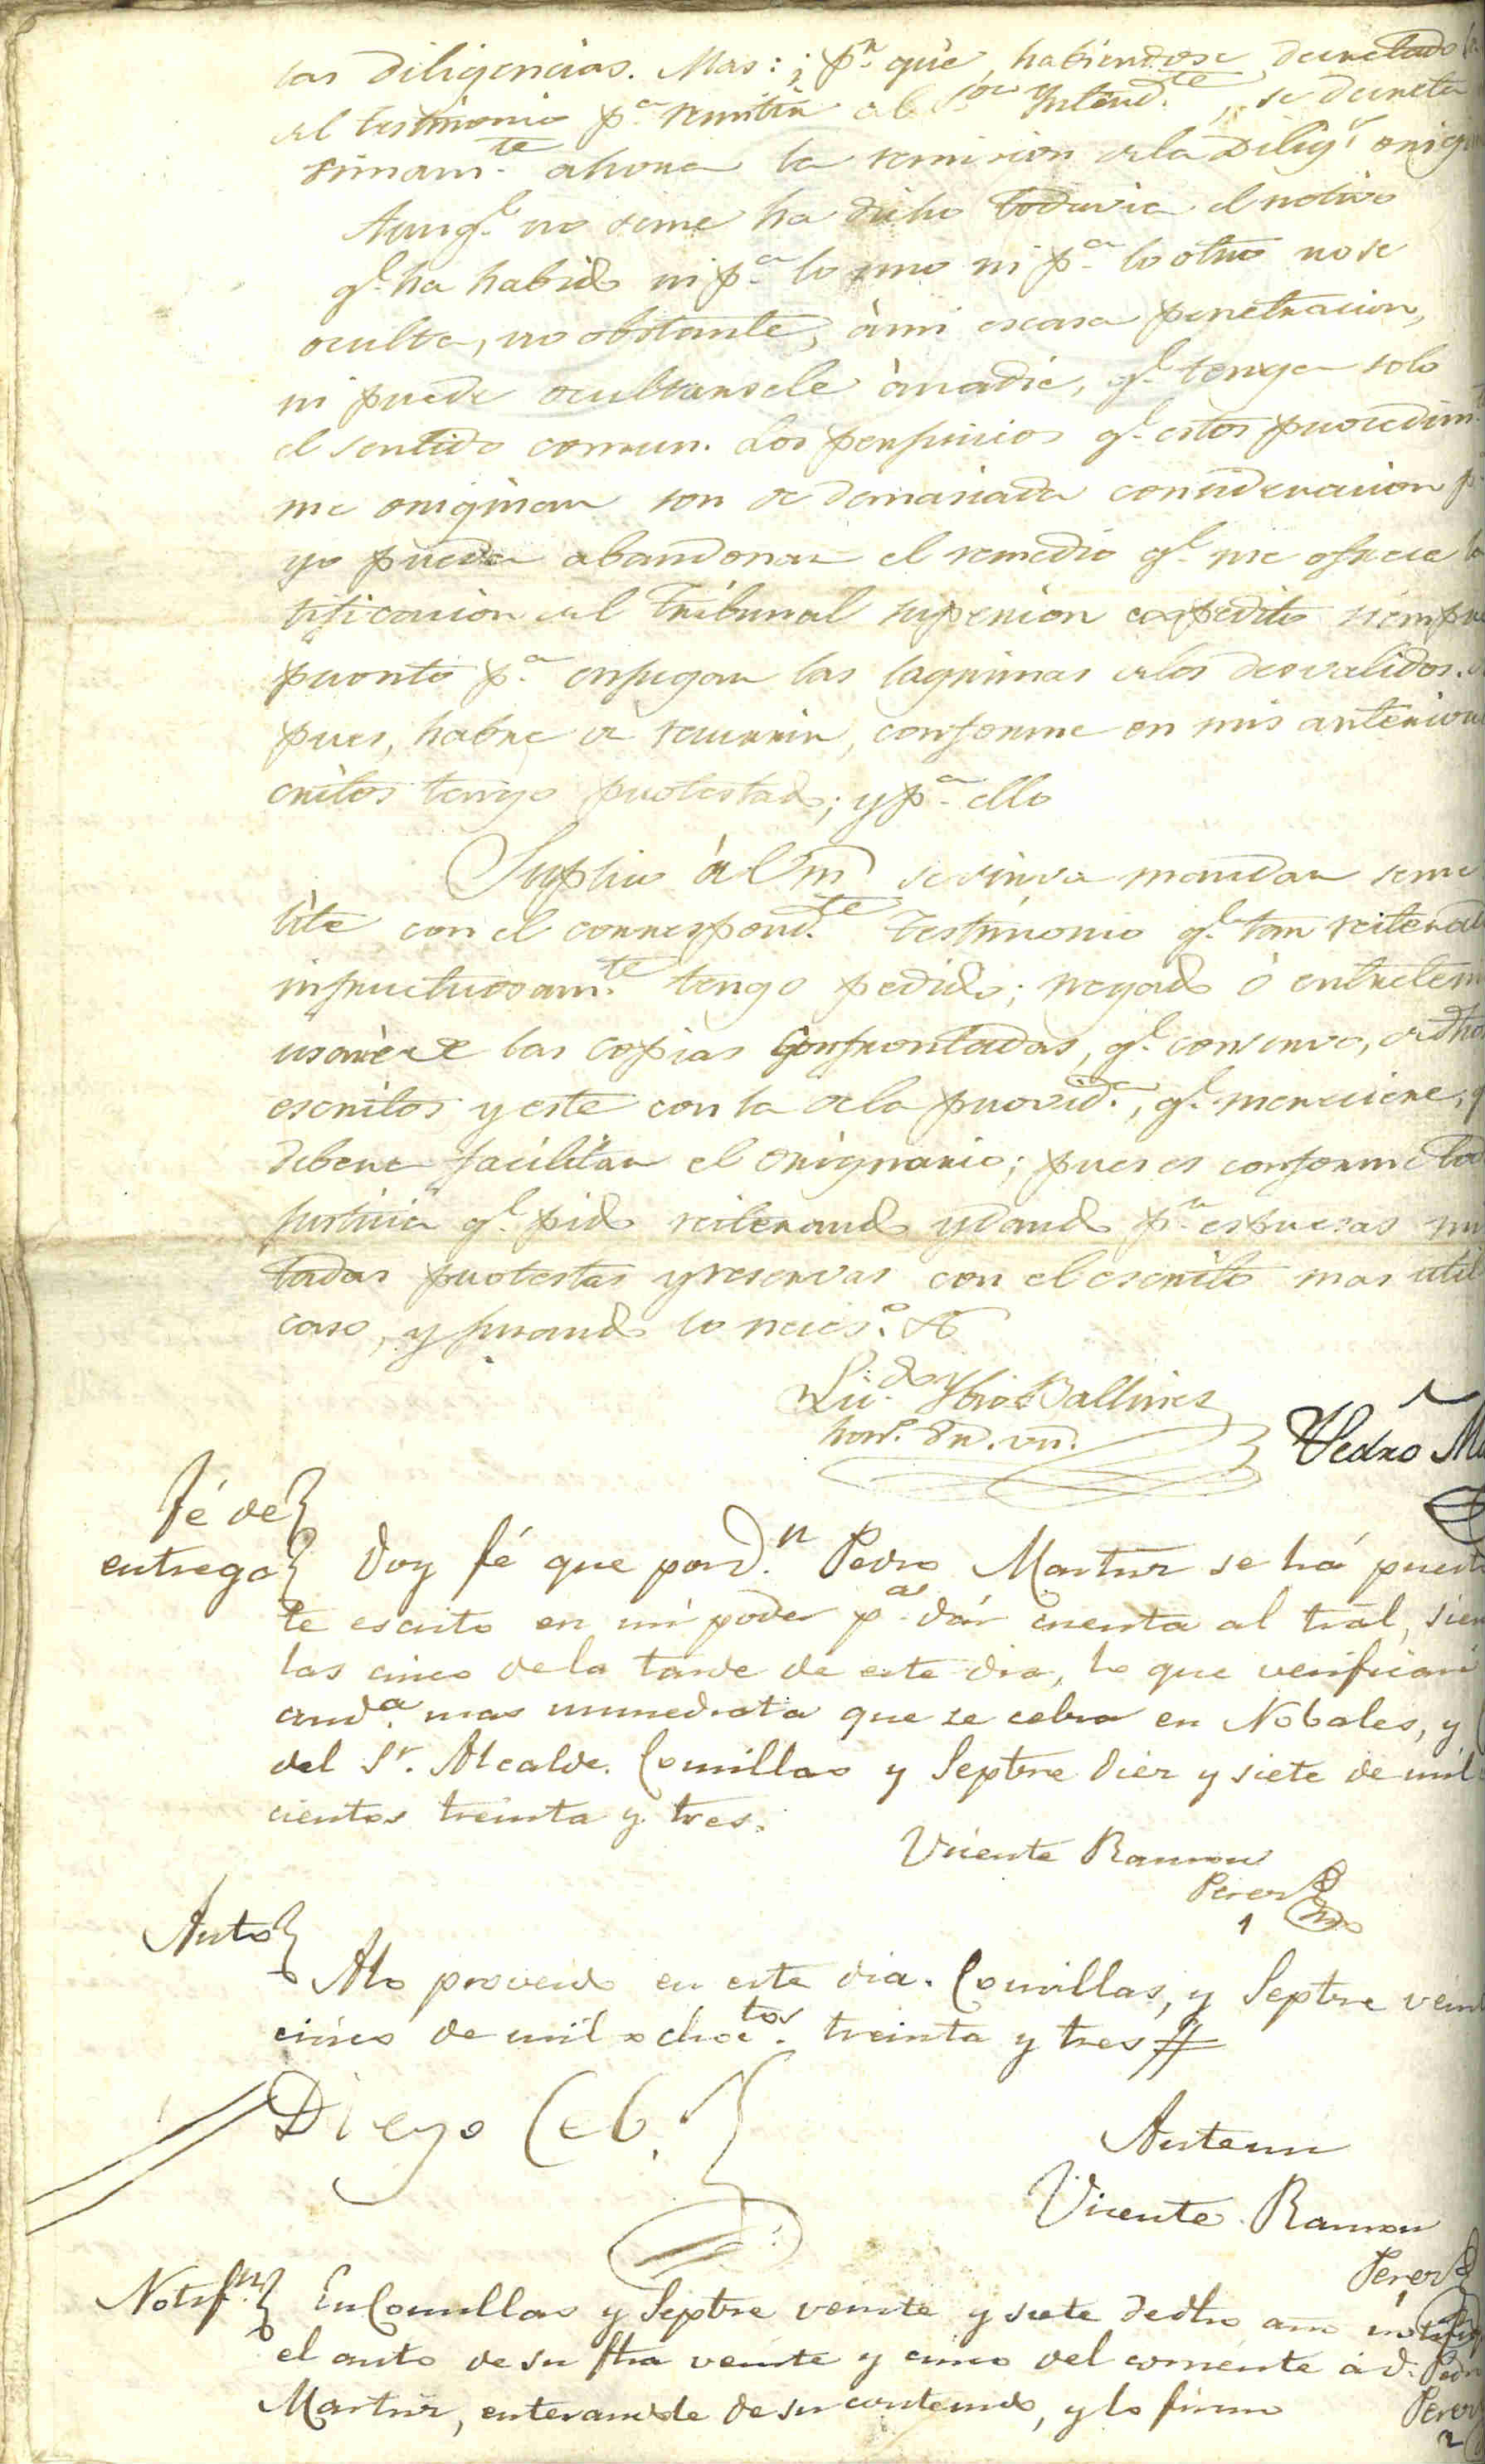 las diligencias. Mas: ¿pr. què habiendose decretado
el testimonio pa. remitir al Sor. Yntendte., se decreta
simamte. ahora la remision dela Diligs.
Aunql. no seme ha dicho todavia el motivo
ql. ha habido ni pa. lo uno ni pa. lo otro nose
oculta, no obstante, àmi escasa penetracion,
ni puede ocultarsele ànadie, ql. tenga solo
el sentido comun. Los perjuicios ql. estos procedim
me originan son de demasiada consideracion
yo pueda abandonar el remedio ql. me ofrece
tificacion del Tribunal superior expedito siempre
pronto pa. enjugar las lagrimas delos desvalidos.
pues, habre de recurrir, conforme en mis anterior
critos tengo protestado; y pa. ello
Suplico à Vm se sirva mandar seme
lite con el correspondte. testimonio ql. tan reiterad
infructuosamte. tengo pedido; negado ò entreten
usarè de las copias confrontadas, ql. conservo, de dhos
escritos y este con la dela provida., ql. mereciere,
deberà facilitar el originario; pues es conforme
justicia ql. pido reiterando ydando pr. espresas mi
tadas protestas y reservas con el escrito mas util
caso, y jurando lo neceso. &
Licdo. Ballines
Pedro Ma
Fé de
entrega Doy fé que por Dn. Pedro Martur se há puest
te escrito en mi poder pa. dár cuenta al tral, sien
las cinco dela tarde de este dia, lo que verificaré
auda. mas immediata que se celebra en Nobales, y
del Sr. Alcalde. Comillas y Septre diez y siete de mil
cientos treinta y tres.
Vicente Ramon
Perez
1
Auto
Alo proveido en este dia. Comillas, y Septre veint
cinco de mil ochoctos. treinta y tres
Diego Ceb.
Antemi
Vicente Ramon
Perez
Notifn. En Comillas y Septre veinte y siete dedho año
el auto de su fha veinte y cinco del corriente á d. Pedro
Martur, enterandole de su contenido, y lo firmo
Perez
2